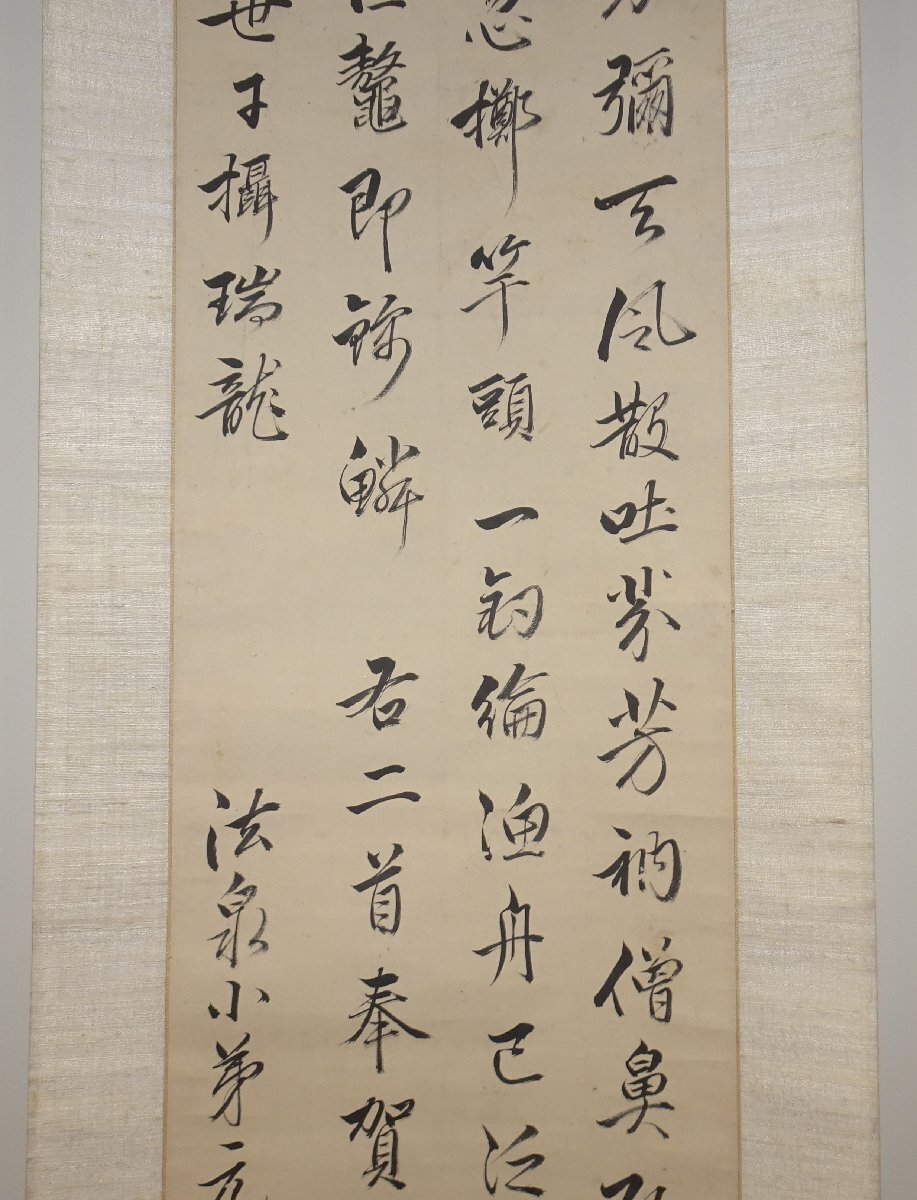 彌天風散吐芬芳衲僧鼻
忽擲竿頭一釣綸漁舟已泛
鼇即錦鱗 右二首奉賀
世子攝瑞龍 法泉小弟元